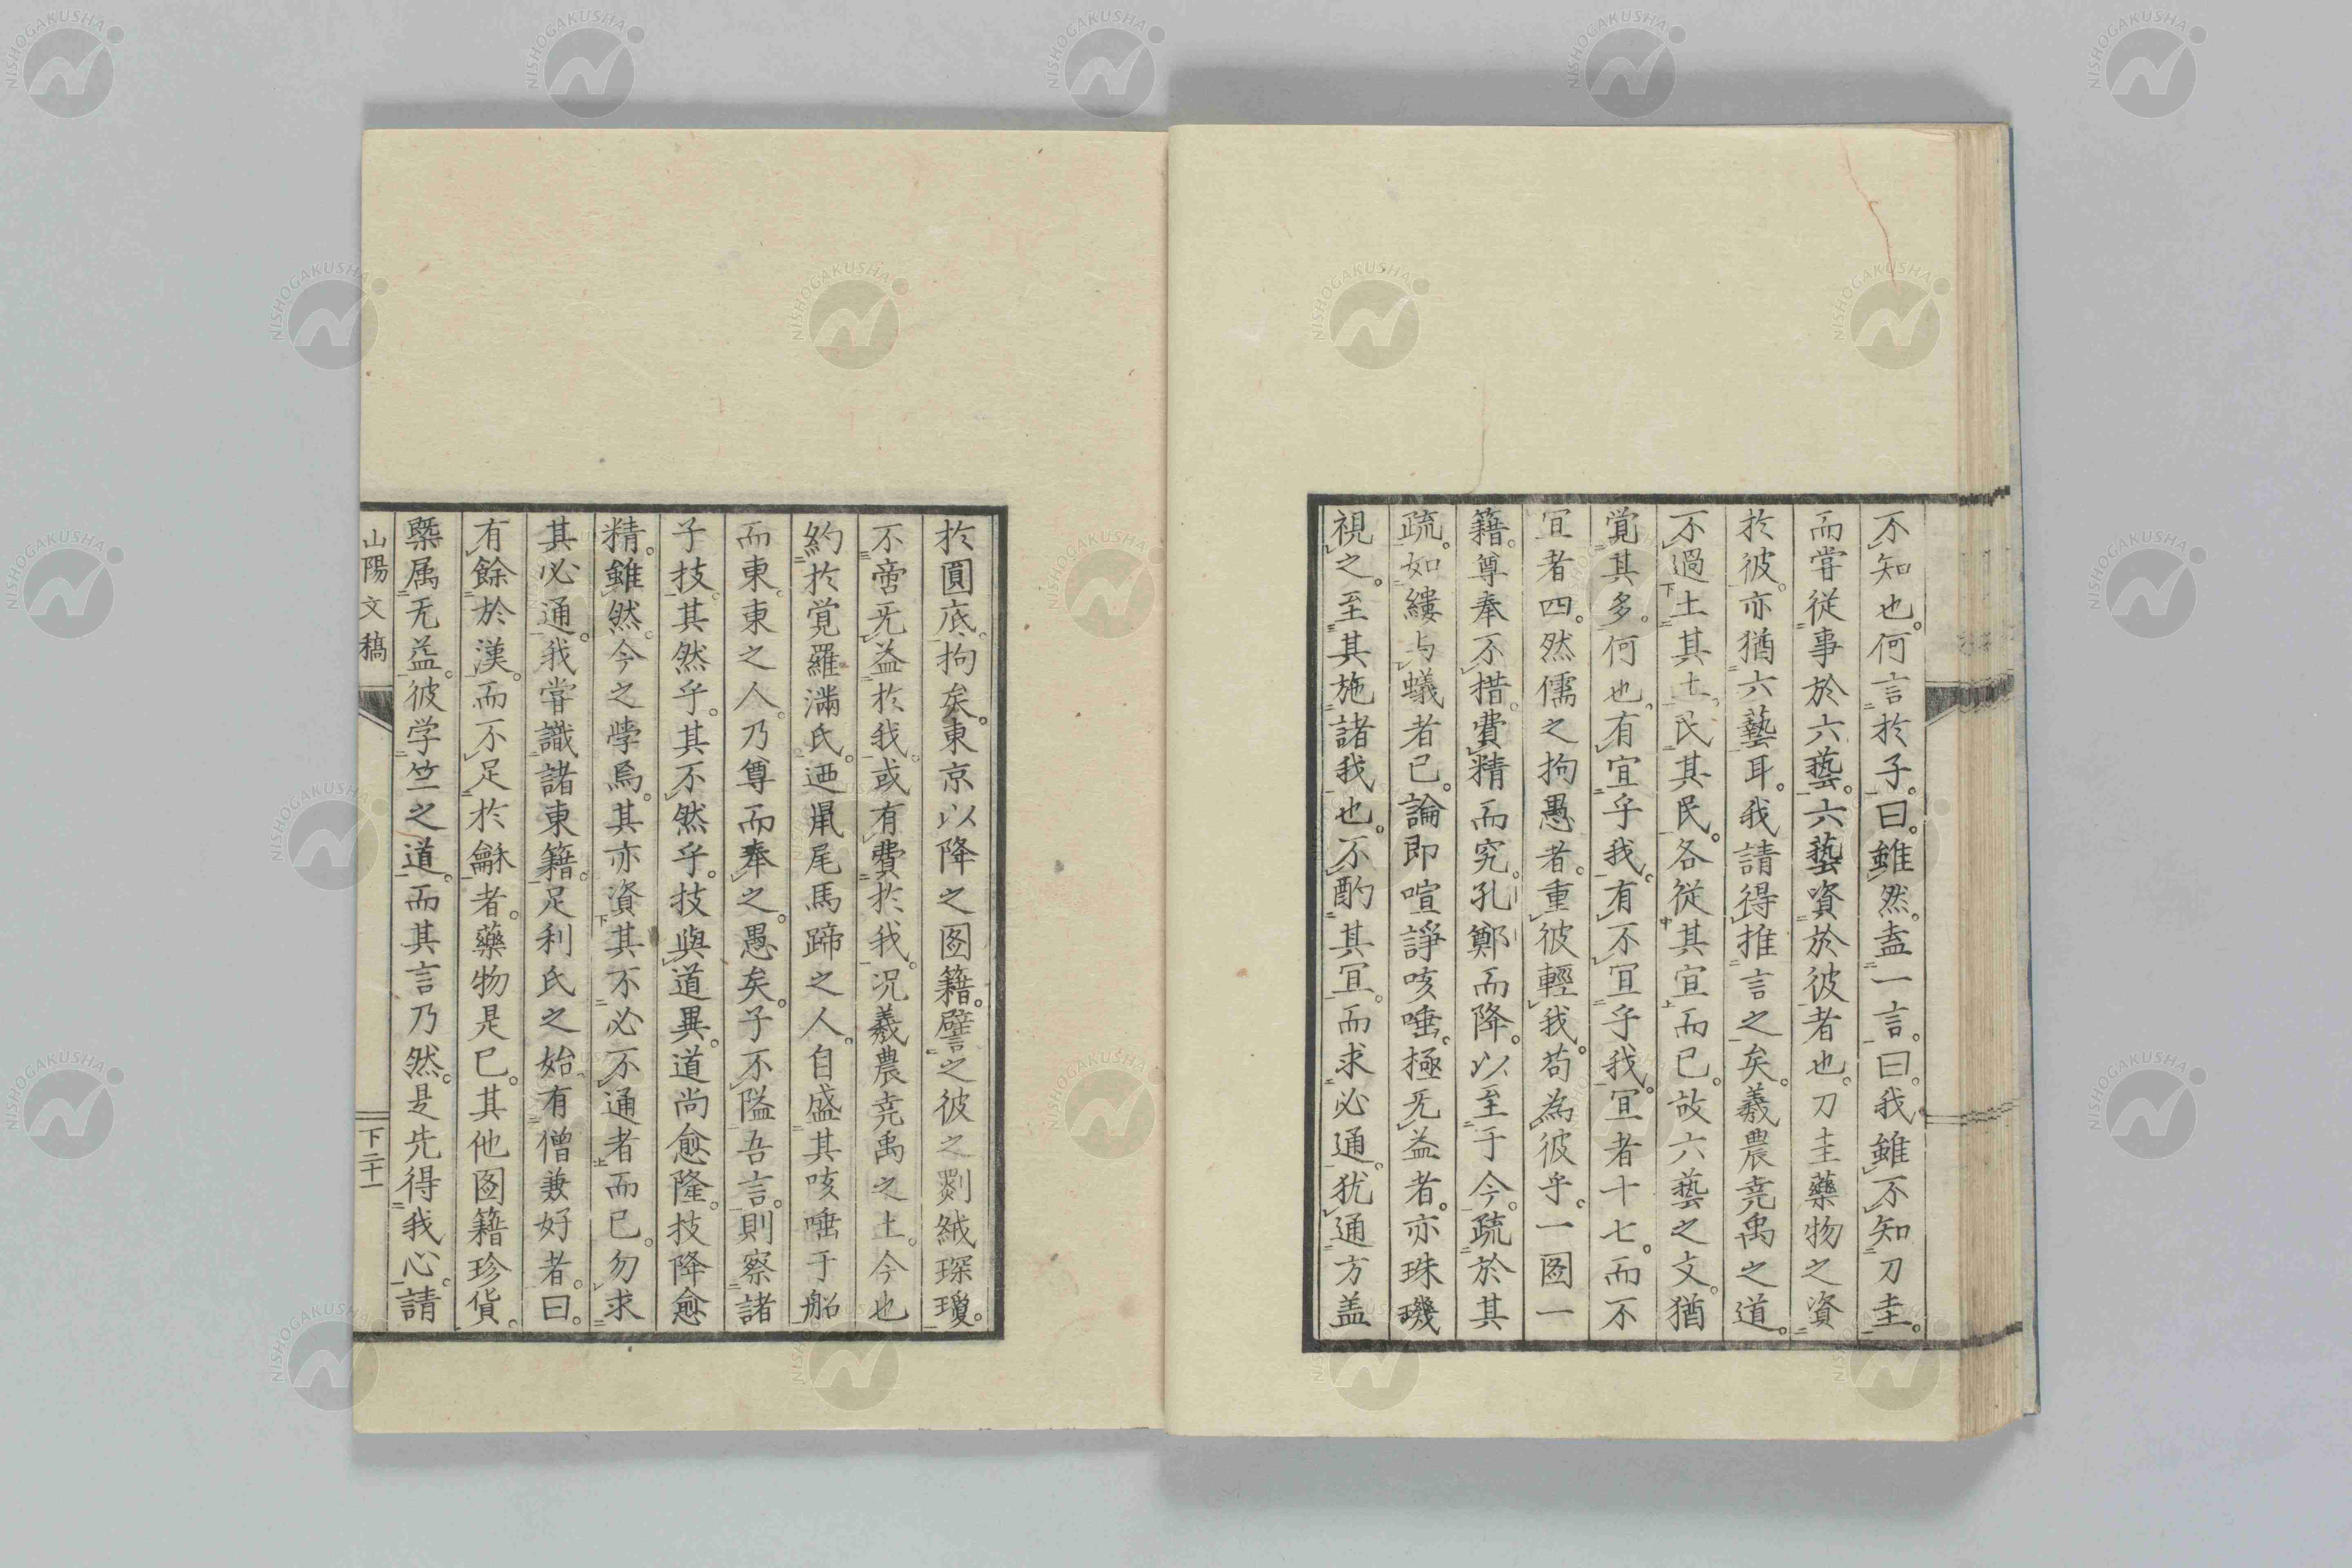 不知也。何言於子。曰。雖然。盍一言。曰。我雖不知刀圭。
而嘗從事於六藝。六藝資於彼者也。刀圭藥物之資
於彼。亦猶六藝耳。我請得推言之矣。羲農堯禹之道。
不過土其土。民其民。各從其宜而已。故六藝之文。猶
覚其多。何也。有宜乎我。有不宜乎我。宜者十七。而不
宜者四。然儒之拘愚者。重彼輕我。苟為彼乎。一圖一
籍。尊奉不措。費精而究。孔鄭而降。以至于今。疏於其
疏。如縷与蟻者已。論即喧諍咳唾。極无益者。亦珠璣
視之。至其施諸我也。不酌其宜。而求必通。犹通方盖
於圓底。拘矣。東京以降之圖籍。譬之彼之剡絨琛瓊。
不啻无益於我。或有費於我。況羲農堯禹之土。今也
約於覚羅滿氏。迺鼠尾馬蹄之人。自盛其咳唾于船
而東。東之人。乃尊而奉之。愚矣。子不隘吾言。則察諸
子技。其然乎。其不然乎。技與道異。道尚愈隆。技降愈
精。雖然。今之學焉。其亦資其不必不通者而已。勿求
其必通。我嘗識諸東籍。足利氏之始。有僧兼好者。曰。
有餘於漢。而不足於龢者。藥物是已。其他圖籍珍貨。
槩属无益。彼学竺之道。而其言乃然。是先得我心。請
山陽文稿
下二十一
NISHOGAKUSHA